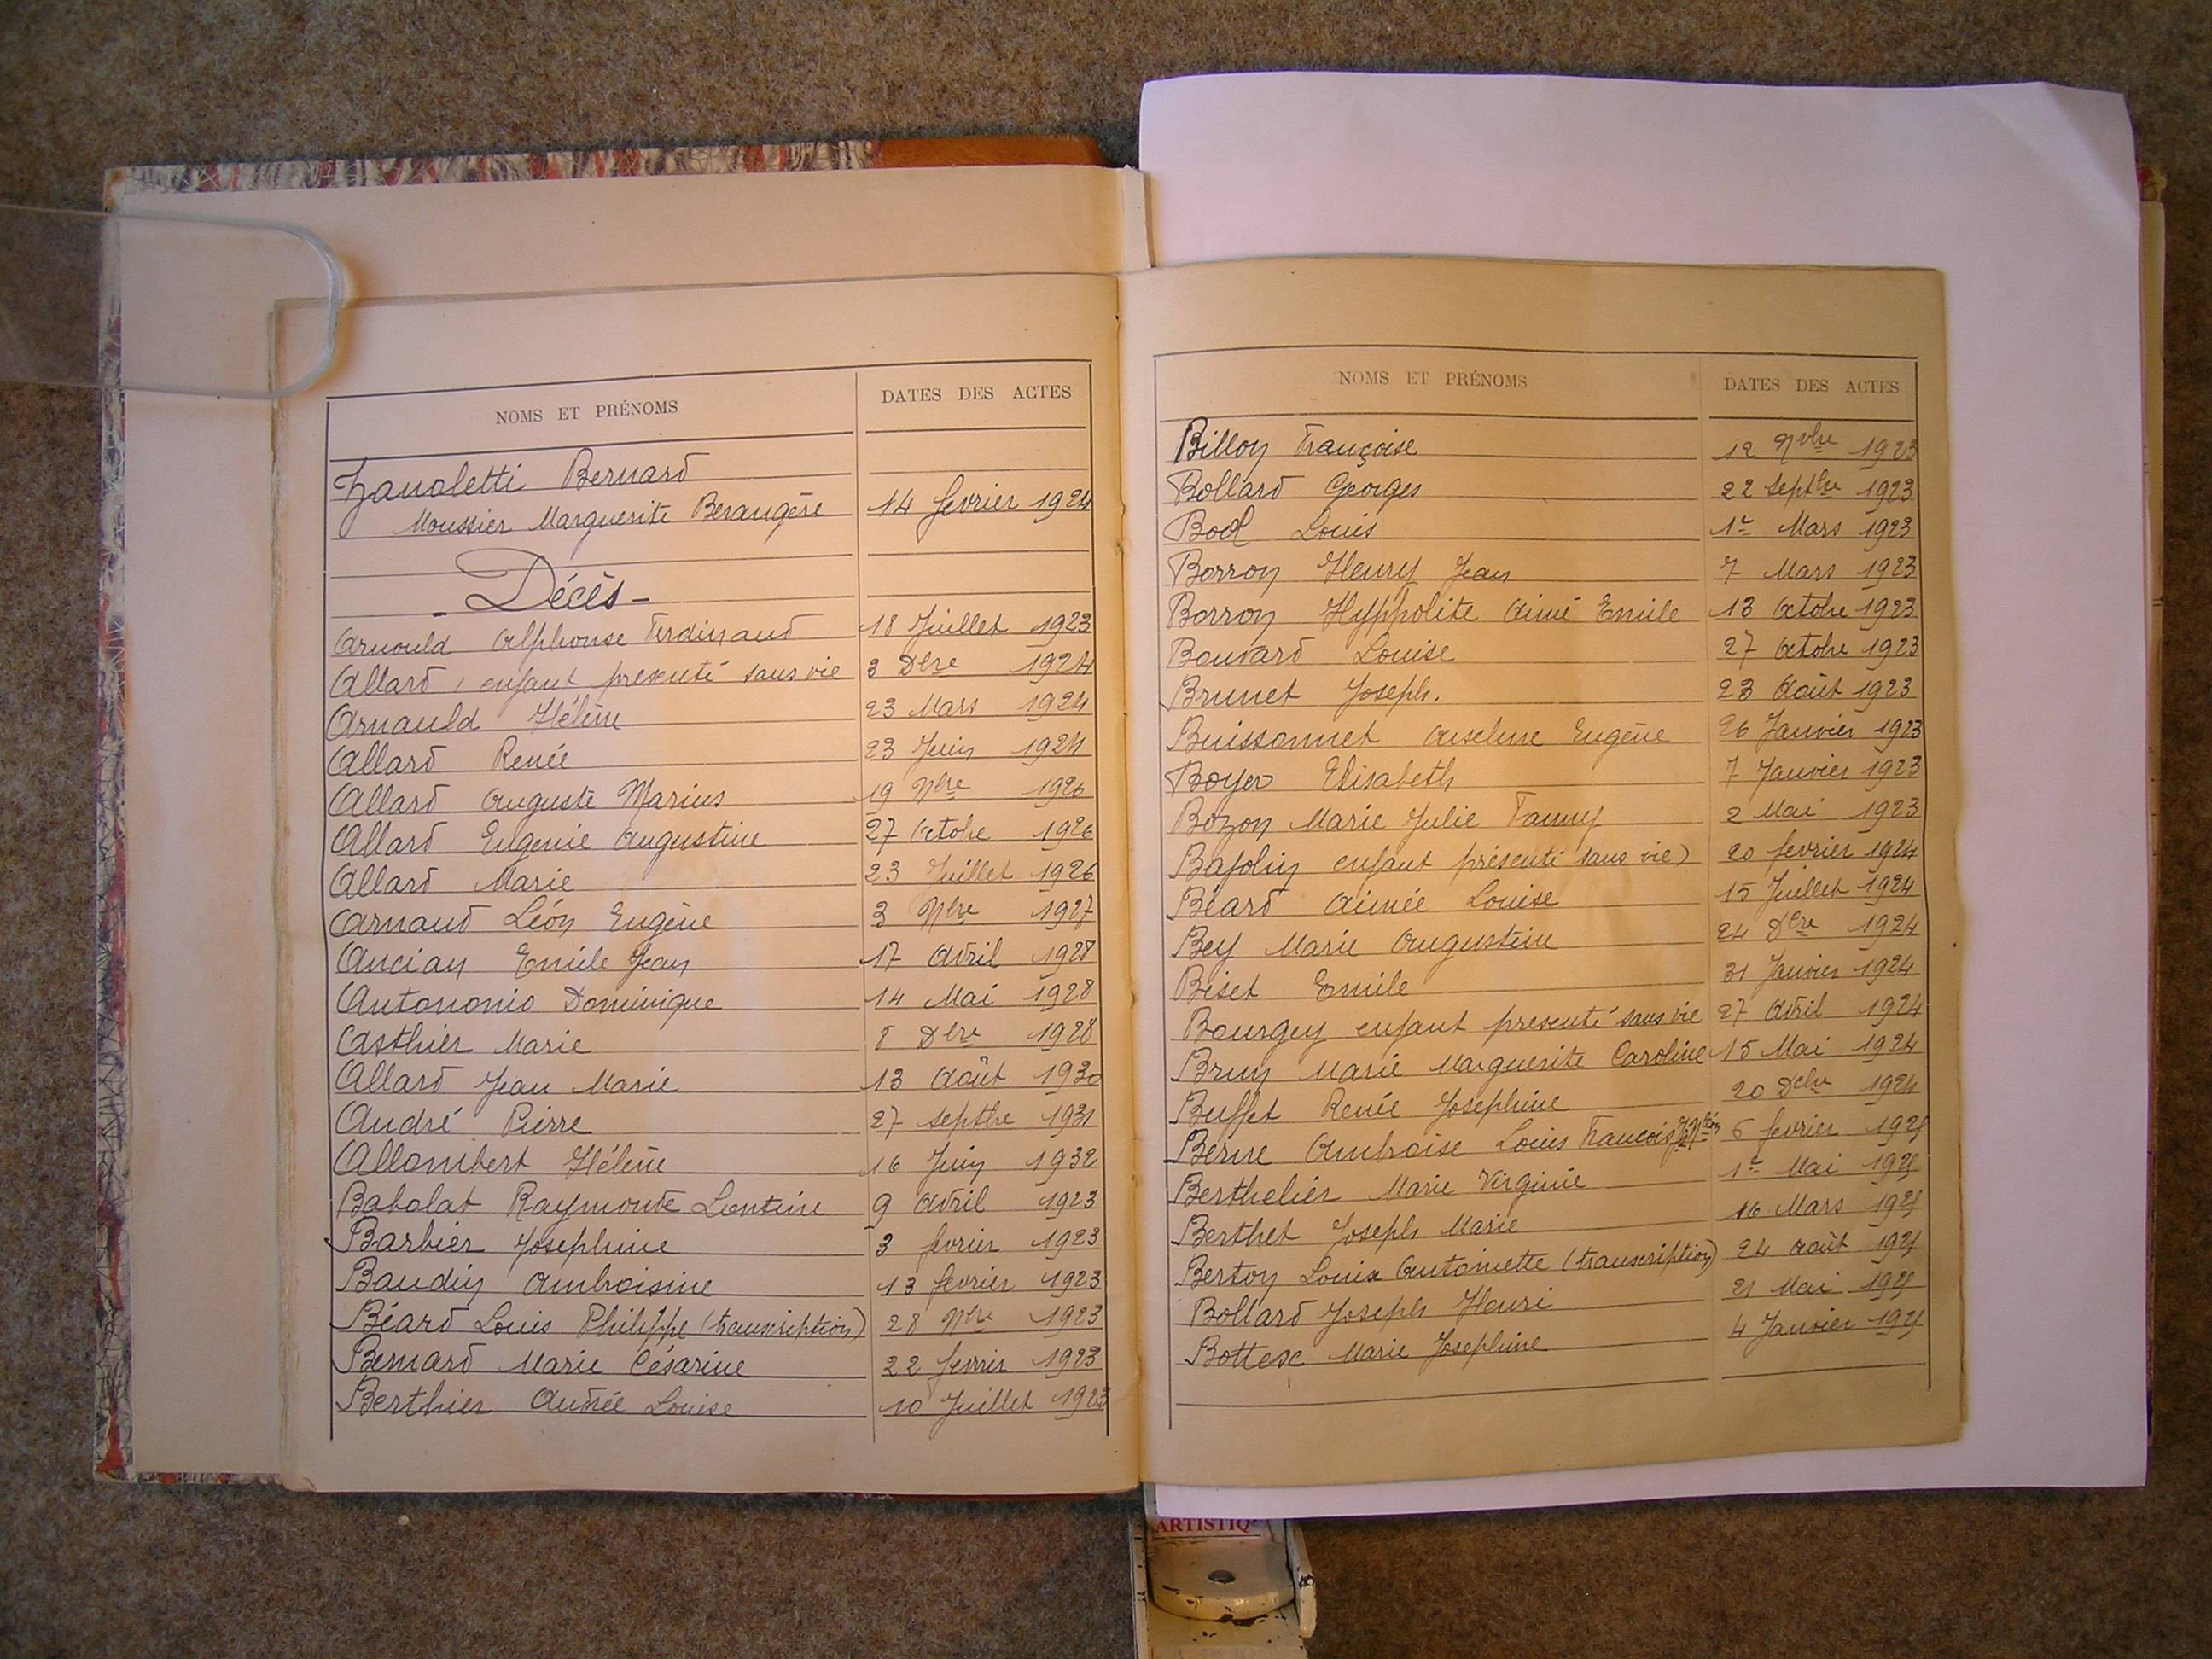 NOMS ET PRÉNOMS DATES DES ACTES
Zanoletti Bernard
Moussier Marguerite Berangère 14 fevrier 1924
- Décès -
Arnould Alphonse Ferdinand 18 Juillet 1923
Allard, enfant presenté sans vie 3 Dbre 1924
Arnauld Hélène 23 Mars 1924
Allard Renée 23 Juin 1924
Allard Auguste Marius 19 Nbre 1926
Allard Eugenie Augustine 27 Octobre 1926
Allard Marie 23 Juillet 1926
Arnaud Léon Eugène 3 Nbre 1927
Ancian Emile Jean 17 Avril 1928
Antononio Dominique 14 Mai 1928
Asthier Marie 8 Dbre 1928
Allard Jean Marie 13 Août 1930
André Pierre 27 septbre 1931
Allombert Hélène 16 Juin 1932
Babolat Raymonde Léontine 9 Avril 1923
Barbier Josephine 3 fevrier 1923
Baudin Ambroisine 13 fevrier 1923
Béard Louis Philippe (transcription) 28 Nbre 1923
Bernard Marie Césarine 22 fevrier 1923
Berthier Andrée Louise 10 Juillet 1923
NOMS ET PRÉNOMS DATES DES ACTES
Billon Françoise 12 Nvbre 1923
Bollard Georges 22 Septbre 1923
Bod Louis 1er Mars 1923
Borron Henry Jean 7 Mars 1923
Borron Hyppolite Aimé Emile 13 Octobre 1923
Bouvard Louise 27 Octobre 1923
Brunet Joseph. 23 Août 1923
Buissonnet Anselme Eugène 26 Janvier 1923
Boyer Elisabeth 7 Janvier 1923
Bozon Marie Julie Fanny 2 Mai 1923
Bajolin enfant présenté sans vie) 20 fevrier 1924
Béard Aimée Louise 15 Juillet 1924
Bey Marie Augustine 24 Dbre 1924
Biset Emile 31 Janvier 1924
Bourgey enfant presenté sans vie 27 Avril 1924
Brun Marie Marguerite Caroline 15 Mai 1924
Buffet Renée Josephine 20 Dcbre 1924
Berne Ambroise Louis Francois 6 fevrier 1925
Berthelier Marie Virginie 1er Mai 1925
Berthet Joseph Marie 16 Mars 1925
Berton Louise Antoinette (transcription) 24 Août 1925
Bollard Joseph Henri 21 Mai 1925
Bottex Marie Josephine 4 Janvier 1925
ARTISTIQ